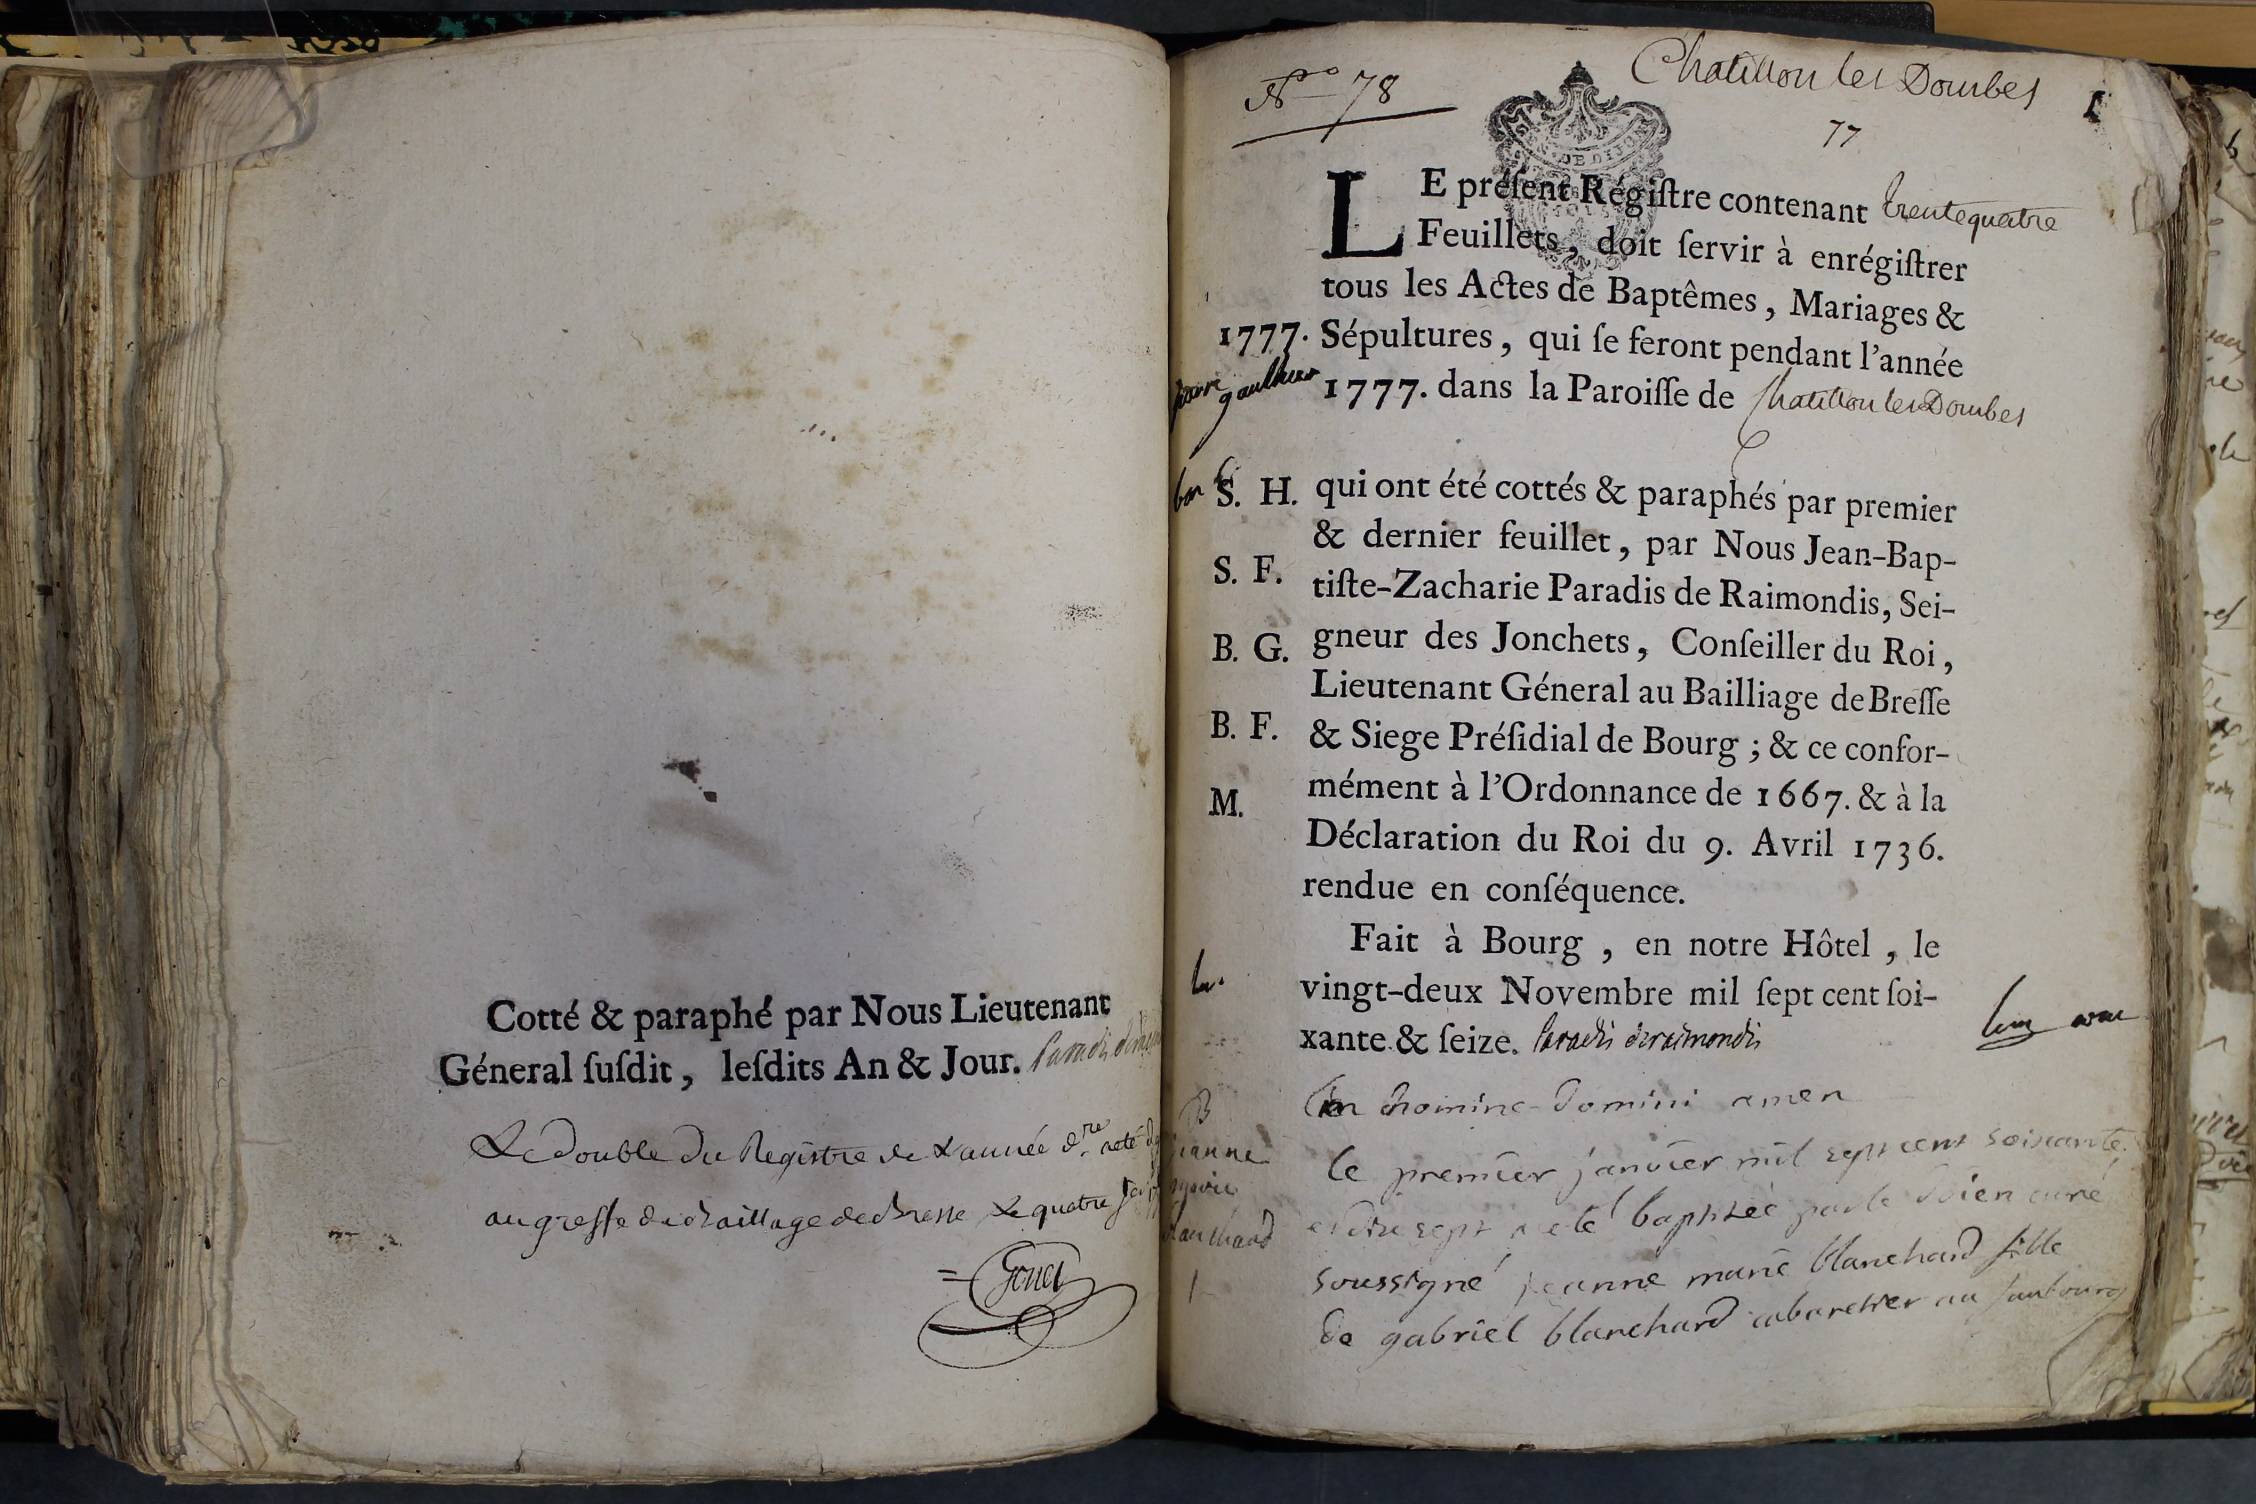 Cotté & paraphé par Nous Lieutenant
Géneral ſuſdit, leſdits An & Jour.
Le double du Registre de L'année d.re
au greffe du Bailliage de Bresse Le quatre
N.o 78
Chatillon les Dombes
77
LE préſent Régiſtre contenant trente quatre
Feuillets, doit ſervir à enrégiſtrer
tous les Actes de Baptêmes, Mariages &
1777. Sépultures, qui ſe feront pendant l'année
gauthier
1777. dans la Paroiſſe de Chatillon les Dombes
S. H. qui ont été cottés & paraphés par premier
& dernier feuillet, par Nous Jean-Bap-
S. F. tiſte-Zacharie Paradis de Raimondis, Sei-
B. G. gneur des Jonchets, Conſeiller du Roi,
Lieutenant Géneral au Bailliage de Breſſe
B. F. & Siege Préſidial de Bourg ; & ce confor-
M. mément à l'Ordonnance de 1667. & à la
Déclaration du Roi du 9. Avril 1736.
rendue en conſéquence.
Fait à Bourg, en notre Hôtel, le
vingt-deux Novembre mil ſept cent ſoi-
xante & ſeize. Paradis deraimondis
In nomine Domini amen
B
jeanne
marie
blanchard
le premier janvier mil sept cent soixante
et dix sept a eté baptizée par le curé
soussigné jeanne marie blanchard fille
de gabriel blanchard cabaretier au faubourg